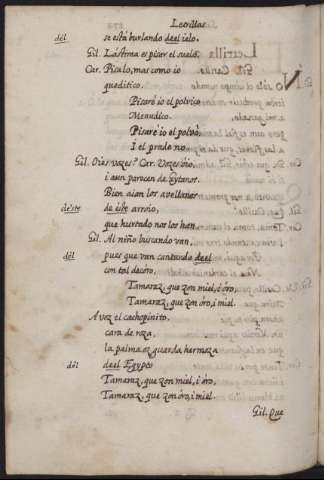 Letrillas
del se está burlando deel ielo.
Gil. Lástima es pisar el suelo.
Car. Písalo, mas como io
quedítico.
Pisaré io el polvico
Menudico.
Pisaré io el polvò,
I el prado no
Gil. Oies vozes? Car. Vozes òio,
i aun parecen de gytanos.
Bien aian los avellanos
de'ste de este arroio,
que hurtado nos los han.
Gil. Al niño buscando van,
dèl pues que van cantando deel
con tal decoro,
Tamaraz, que zon miel, i óro,
Tamaraz, que zon óro, i miel.
A voz el cachopinito.
cara de roza,
la palma oz guarda hermoza
dèl deel Egypto
Tamaraz, que zon miel, i óro,
Tamaraz, que zon óro, i miel.
Gil. Que